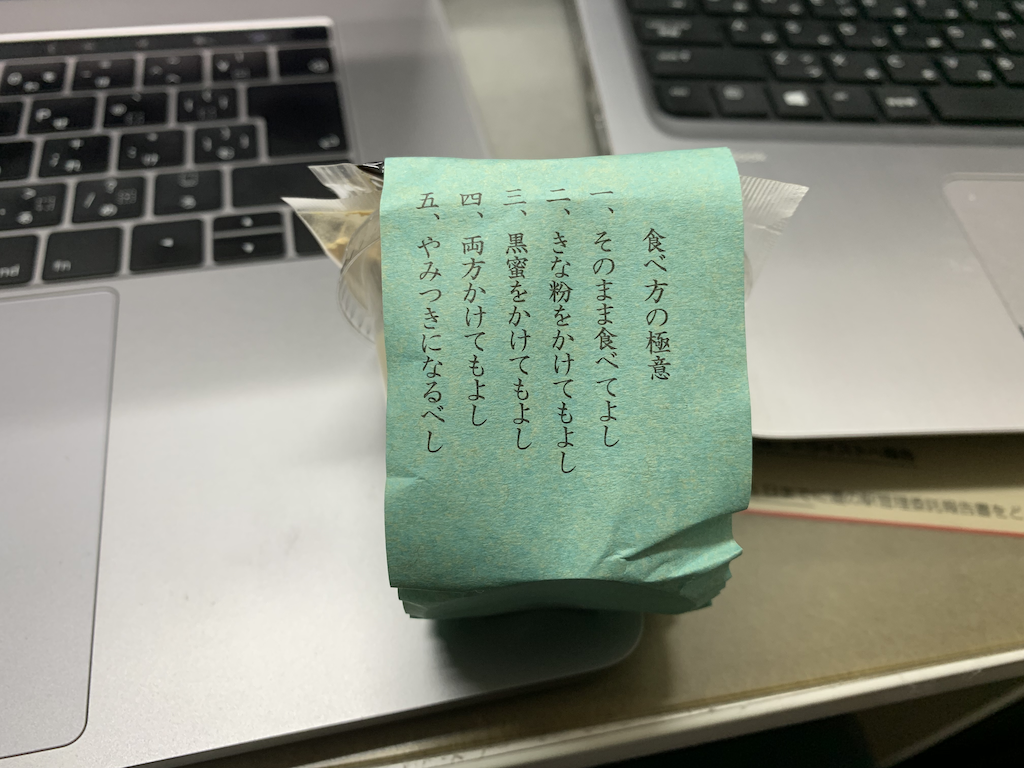 食べ方の極意
一、そのまま食べてよし
二、きな粉をかけてもよし
三、黒蜜をかけてもよし
四、両方かけてもよし
五、やみつきになるべし
fn